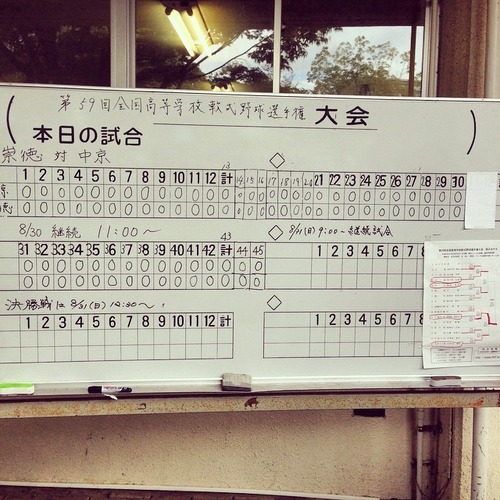 第59回全国高等学校軟式野球選手権 大会
本日の試合
崇徳 対 中京
1 2 3 4 5 6 7 8 9 10 11 12 13 計 14 15 16 17 18 19 20 21 22 23 24 25 26 27 28 29 30
京 0 0 0 0 0 0 0 0 0 0 0 0 0 0 0 0 0 0 0 0 0 0 0 0 0 0 0 0 0 0
徳 0 0 0 0 0 0 0 0 0 0 0 0 0 0 0 0 0 0 0 0 0 0 0 0 0 0 0 0 0 0
8/30 継続 11:00〜
8/31(日) 9:00〜継続試合
31 32 33 34 35 36 37 38 39 40 41 42 43 計 44 45
0 0 0 0 0 0 0 0 0 0 0 0 0 0 0
0 0 0 0 0 0 0 0 0 0 0 0 0 0 0
1 2 3 4 5 6 7 8
決勝戦は 8/31(日) 12:30〜
1 2 3 4 5 6 7 8 9 10 11 12 計
1 2 3 4 5 6 7 8